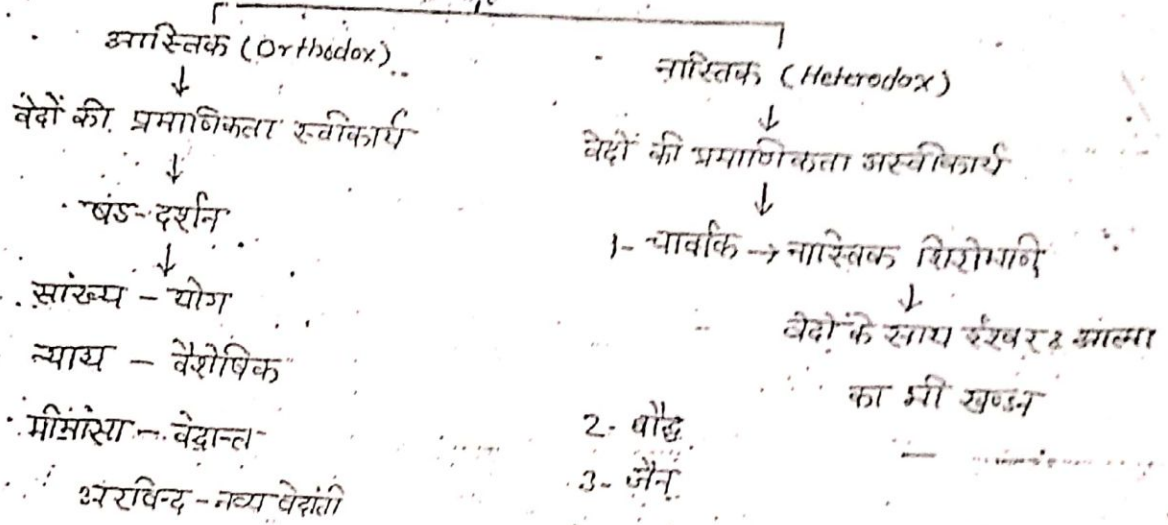 आस्तिक (Orthodox)
↓
वेदों की प्रमाणिकता स्वीकार्य
↓
षंड-दर्शन
↓
सांख्य - योग
न्याय - वैशेषिक
मीमांसा - वेदान्त
अरविन्द - नव्य वेदांती
नास्तिक (Heterodox)
↓
वेदों की प्रमाणिकता अस्वीकार्य
↓
1- चार्वाक → नास्तिक शिरोमणि
↓
वेदों के साथ ईश्वर & आत्मा
का भी खण्डन
2- बौद्ध
3- जैन